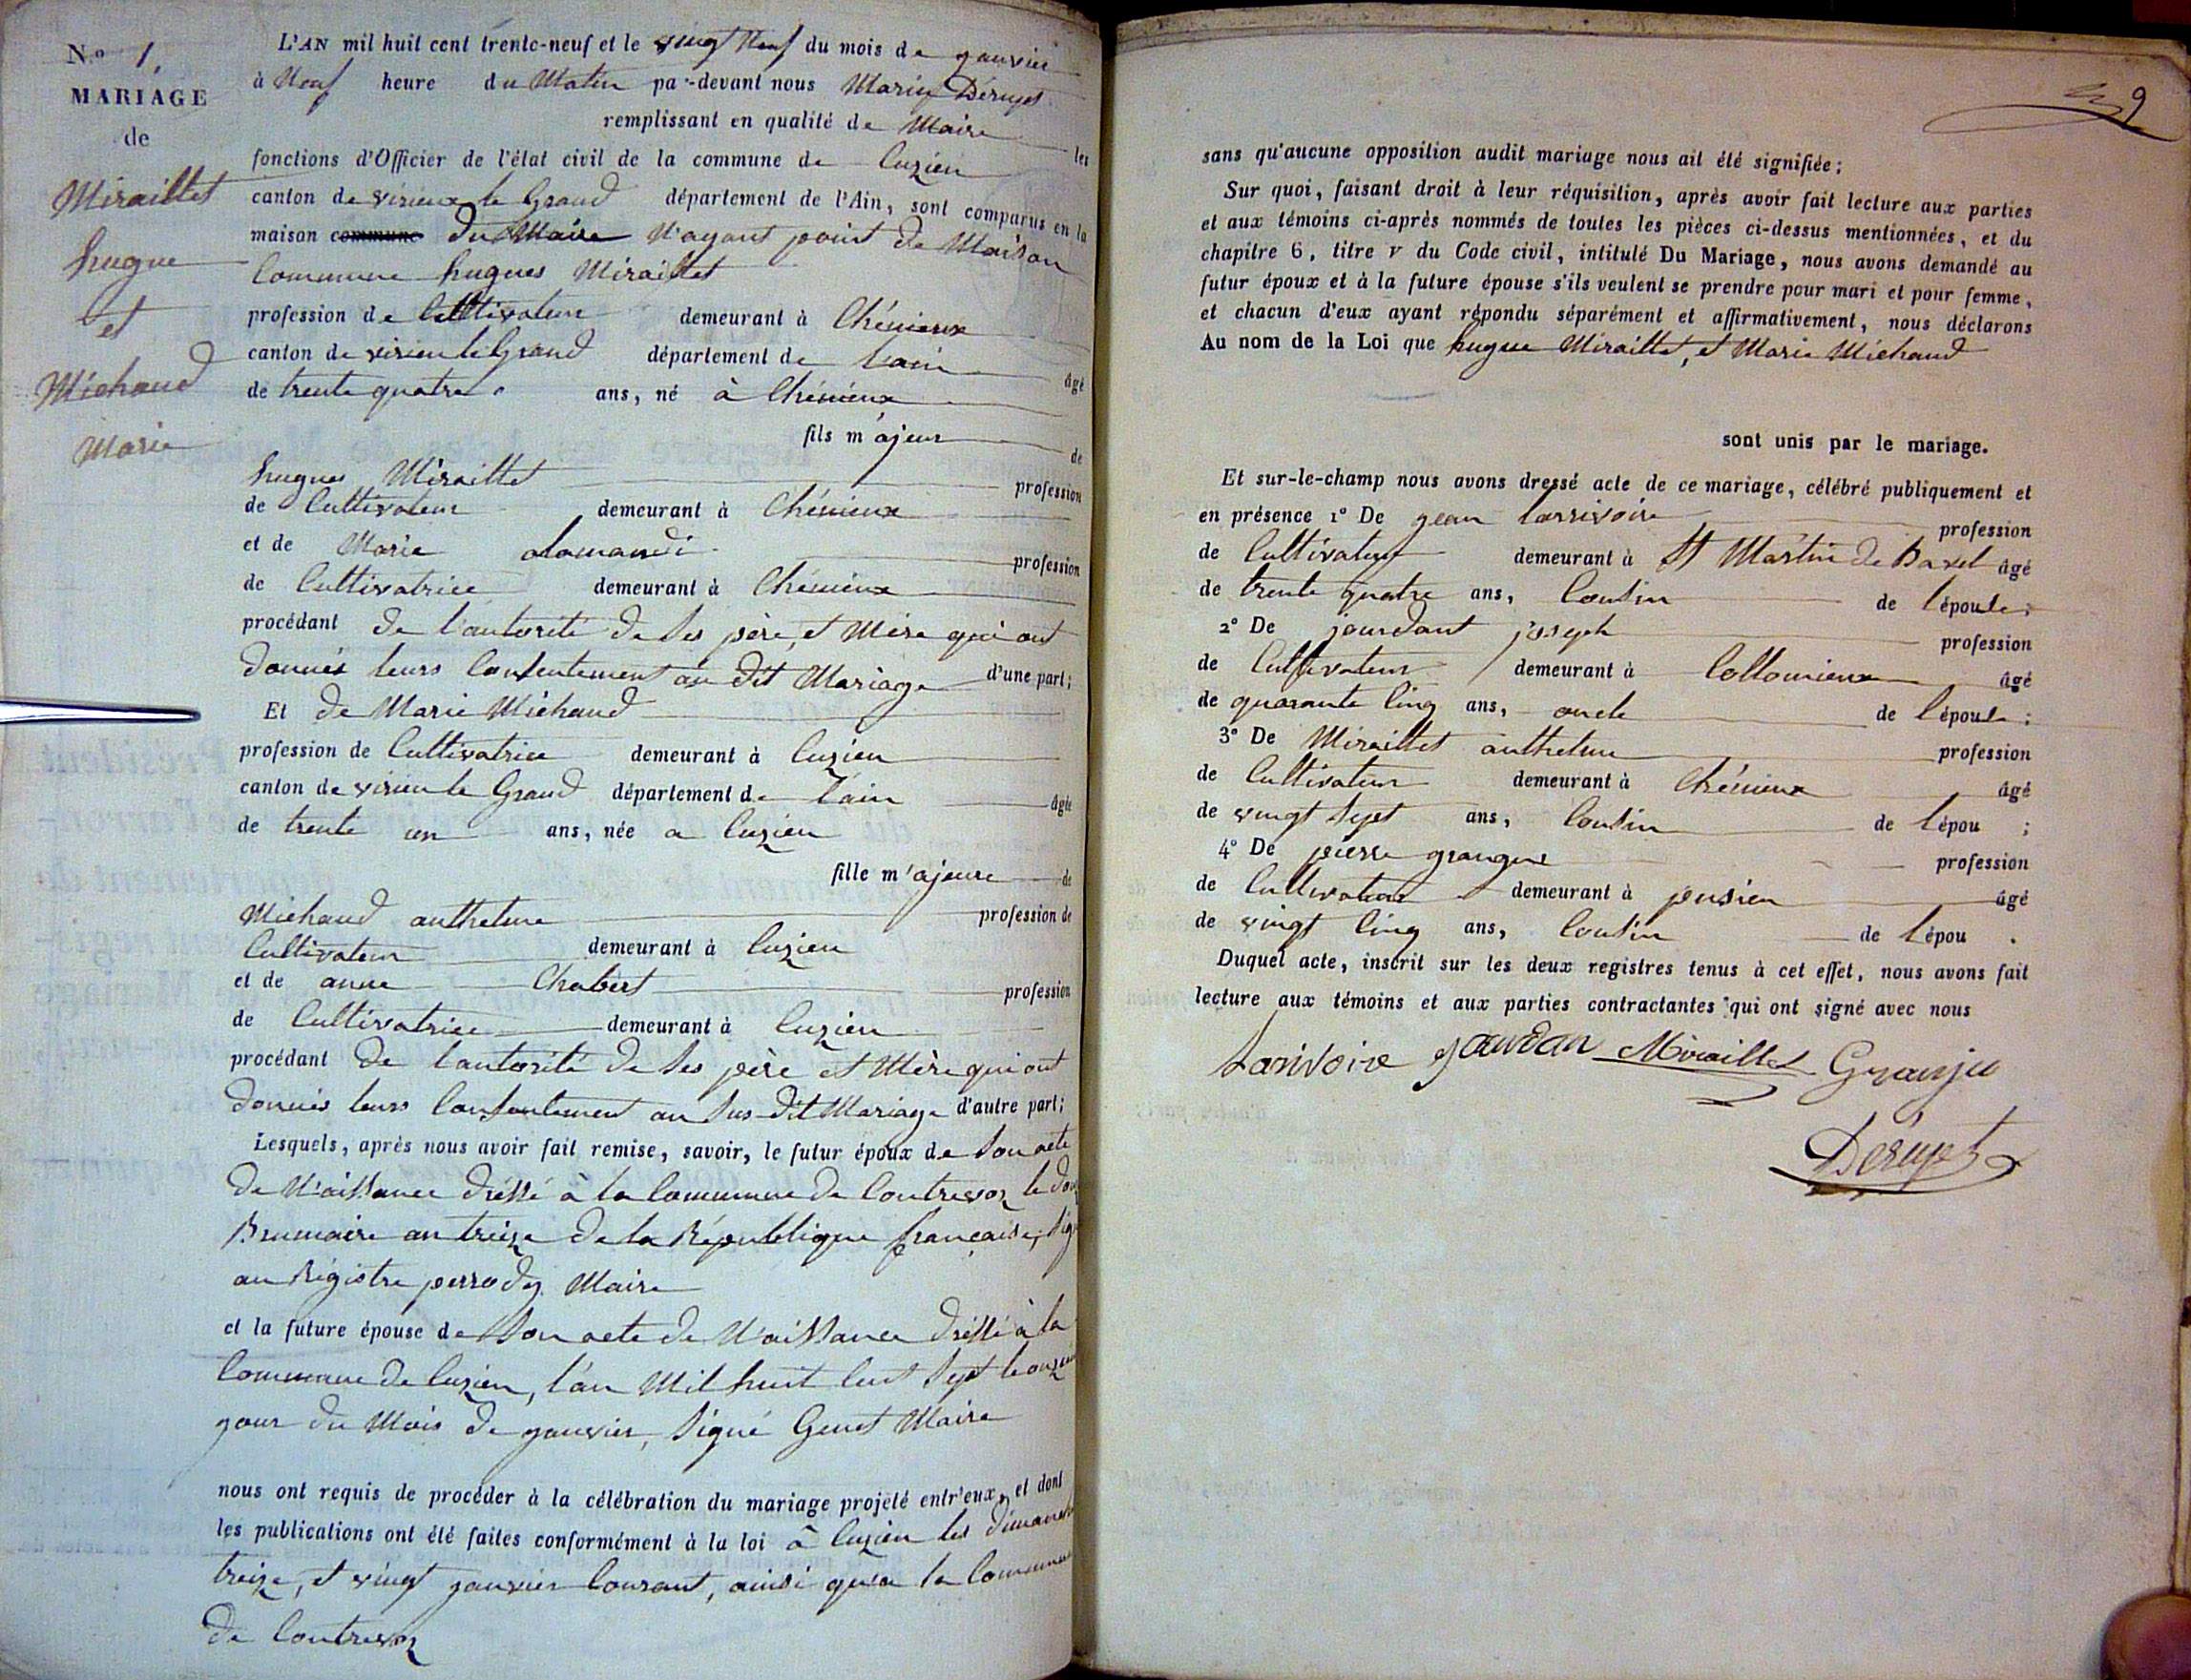 N.o 1.
MARIAGE
de
Miraillet
hugue
et
Michaud
Marie
L'AN mil huit cent trente-neuf et le vingt neuf du mois de janvier
à Neuf heure du Matin pa -devant nous Marin Déruyet
remplissant en qualité de Maire les
fonctions d'Officier de l'état civil de la commune de Cuzieu
canton de virieux le Grand département de l'Ain, sont comparus en la
maison commune du Maire N'ayant point de Maison
Commune hugues Miraillet
profession de Cultivateur demeurant à Chémieux
canton de virieu le Grand département de Lain âgé
de trente quatre ans, né à Chémieux
fils m'ajeur de
hugues Miraillet profession
de Cultivateur demeurant à Chémieux
et de Marie alamandi profession
de Cultivatrice demeurant à Chémieux
procédant de l'autorité de ses père, et Mère qui ont
donnés leurs Consentement au dit Mariage d'une part;
Et de Marie Michaud
profession de Cultivatrice demeurant à Cuzieu
canton de virieu le Grand département de l'ain âgée
de trente un ans, née a Cuzieu
fille m'ajeure de
Michaud anthelme profession de
Cultivateur demeurant à Cuzieu
et de anne Chabert profession
de Cultivatrice demeurant à Cuzieu
procédant de lautorité de ses père et Mère qui ont
donnés leurs Consentement au sus-dit Mariage d'autre part;
Lesquels, après nous avoir fait remise, savoir, le futur époux de son acte
de N'aissance dréssé à la Commune de Contrevoz le
Brumaire an treize de la République française,
au Régistre perrody Maire
et la future épouse de son acte de N'aissance dréssé à la
Commune de Cuzieu, l'an Mil huit Cent Sept le
jour du Mois de janvier, signé Genet Maire
nous ont requis de procéder à la célébration du mariage projeté entr'eux, et dont
les publications ont été faites conformément à la loi à Cuzieu les
treize, et vingt janvier Courant, ainsi qu'a la
de Contrevoz
9
sans qu'aucune opposition audit mariage nous ait été signifiée;
Sur quoi, faisant droit à leur réquisition, après avoir fait lecture aux parties
et aux témoins ci-après nommés de toutes les pièces ci-dessus mentionnées, et du
chapitre 6, titre v du Code civil, intitulé Du Mariage, nous avons demandé au
futur époux et à la future épouse s'ils veulent se prendre pour mari et pour femme,
et chacun d'eux ayant répondu séparément et affirmativement, nous déclarons
Au nom de la Loi que hugue Miraillet, et Marie Michaud
sont unis par le mariage.
Et sur-le-champ nous avons dressé acte de ce mariage, célébré publiquement et
en présence 1° De jean Larrivoire profession
de Cultivateur demeurant à St Martin de Bavel âgé
de trente quatre ans, Cousin de l'épouse;
2° De jourdant joseph profession
de Cultivateur demeurant à Collomieux âgé
de quarante Cinq ans, oncle de l'épouse;
3° De Miraillet anthelme profession
de Cultivateur demeurant à Chémieux âgé
de vingt Sept ans, Cousin de l'épou ;
4° De pierre grangeu profession
de Cultivateur demeurant à pusieu âgé
de vingt Cinq ans, Cousin de l'épou .
Duquel acte, inscrit sur les deux registres tenus à cet effet, nous avons fait
lecture aux témoins et aux parties contractantes qui ont signé avec nous
Larivoire Jourdan Miraillet Granju
Déruyet